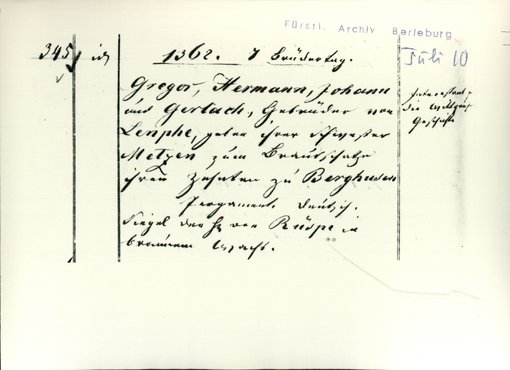 Fürstl. Archiv Berleburg
345 id
1362. 7 Brüdertag.
Juli 10
Gregor, Hermann, Johann
und Gerlach, Gebrüder von
Lenphe, geben ihrer Schwester
Metzen zum Brautschatze
ihren Zehnten zu Berghusen
Pergament. Deutsch.
Siegel des H. von Rüspe in
braunem Wachs.
die
Geschichte